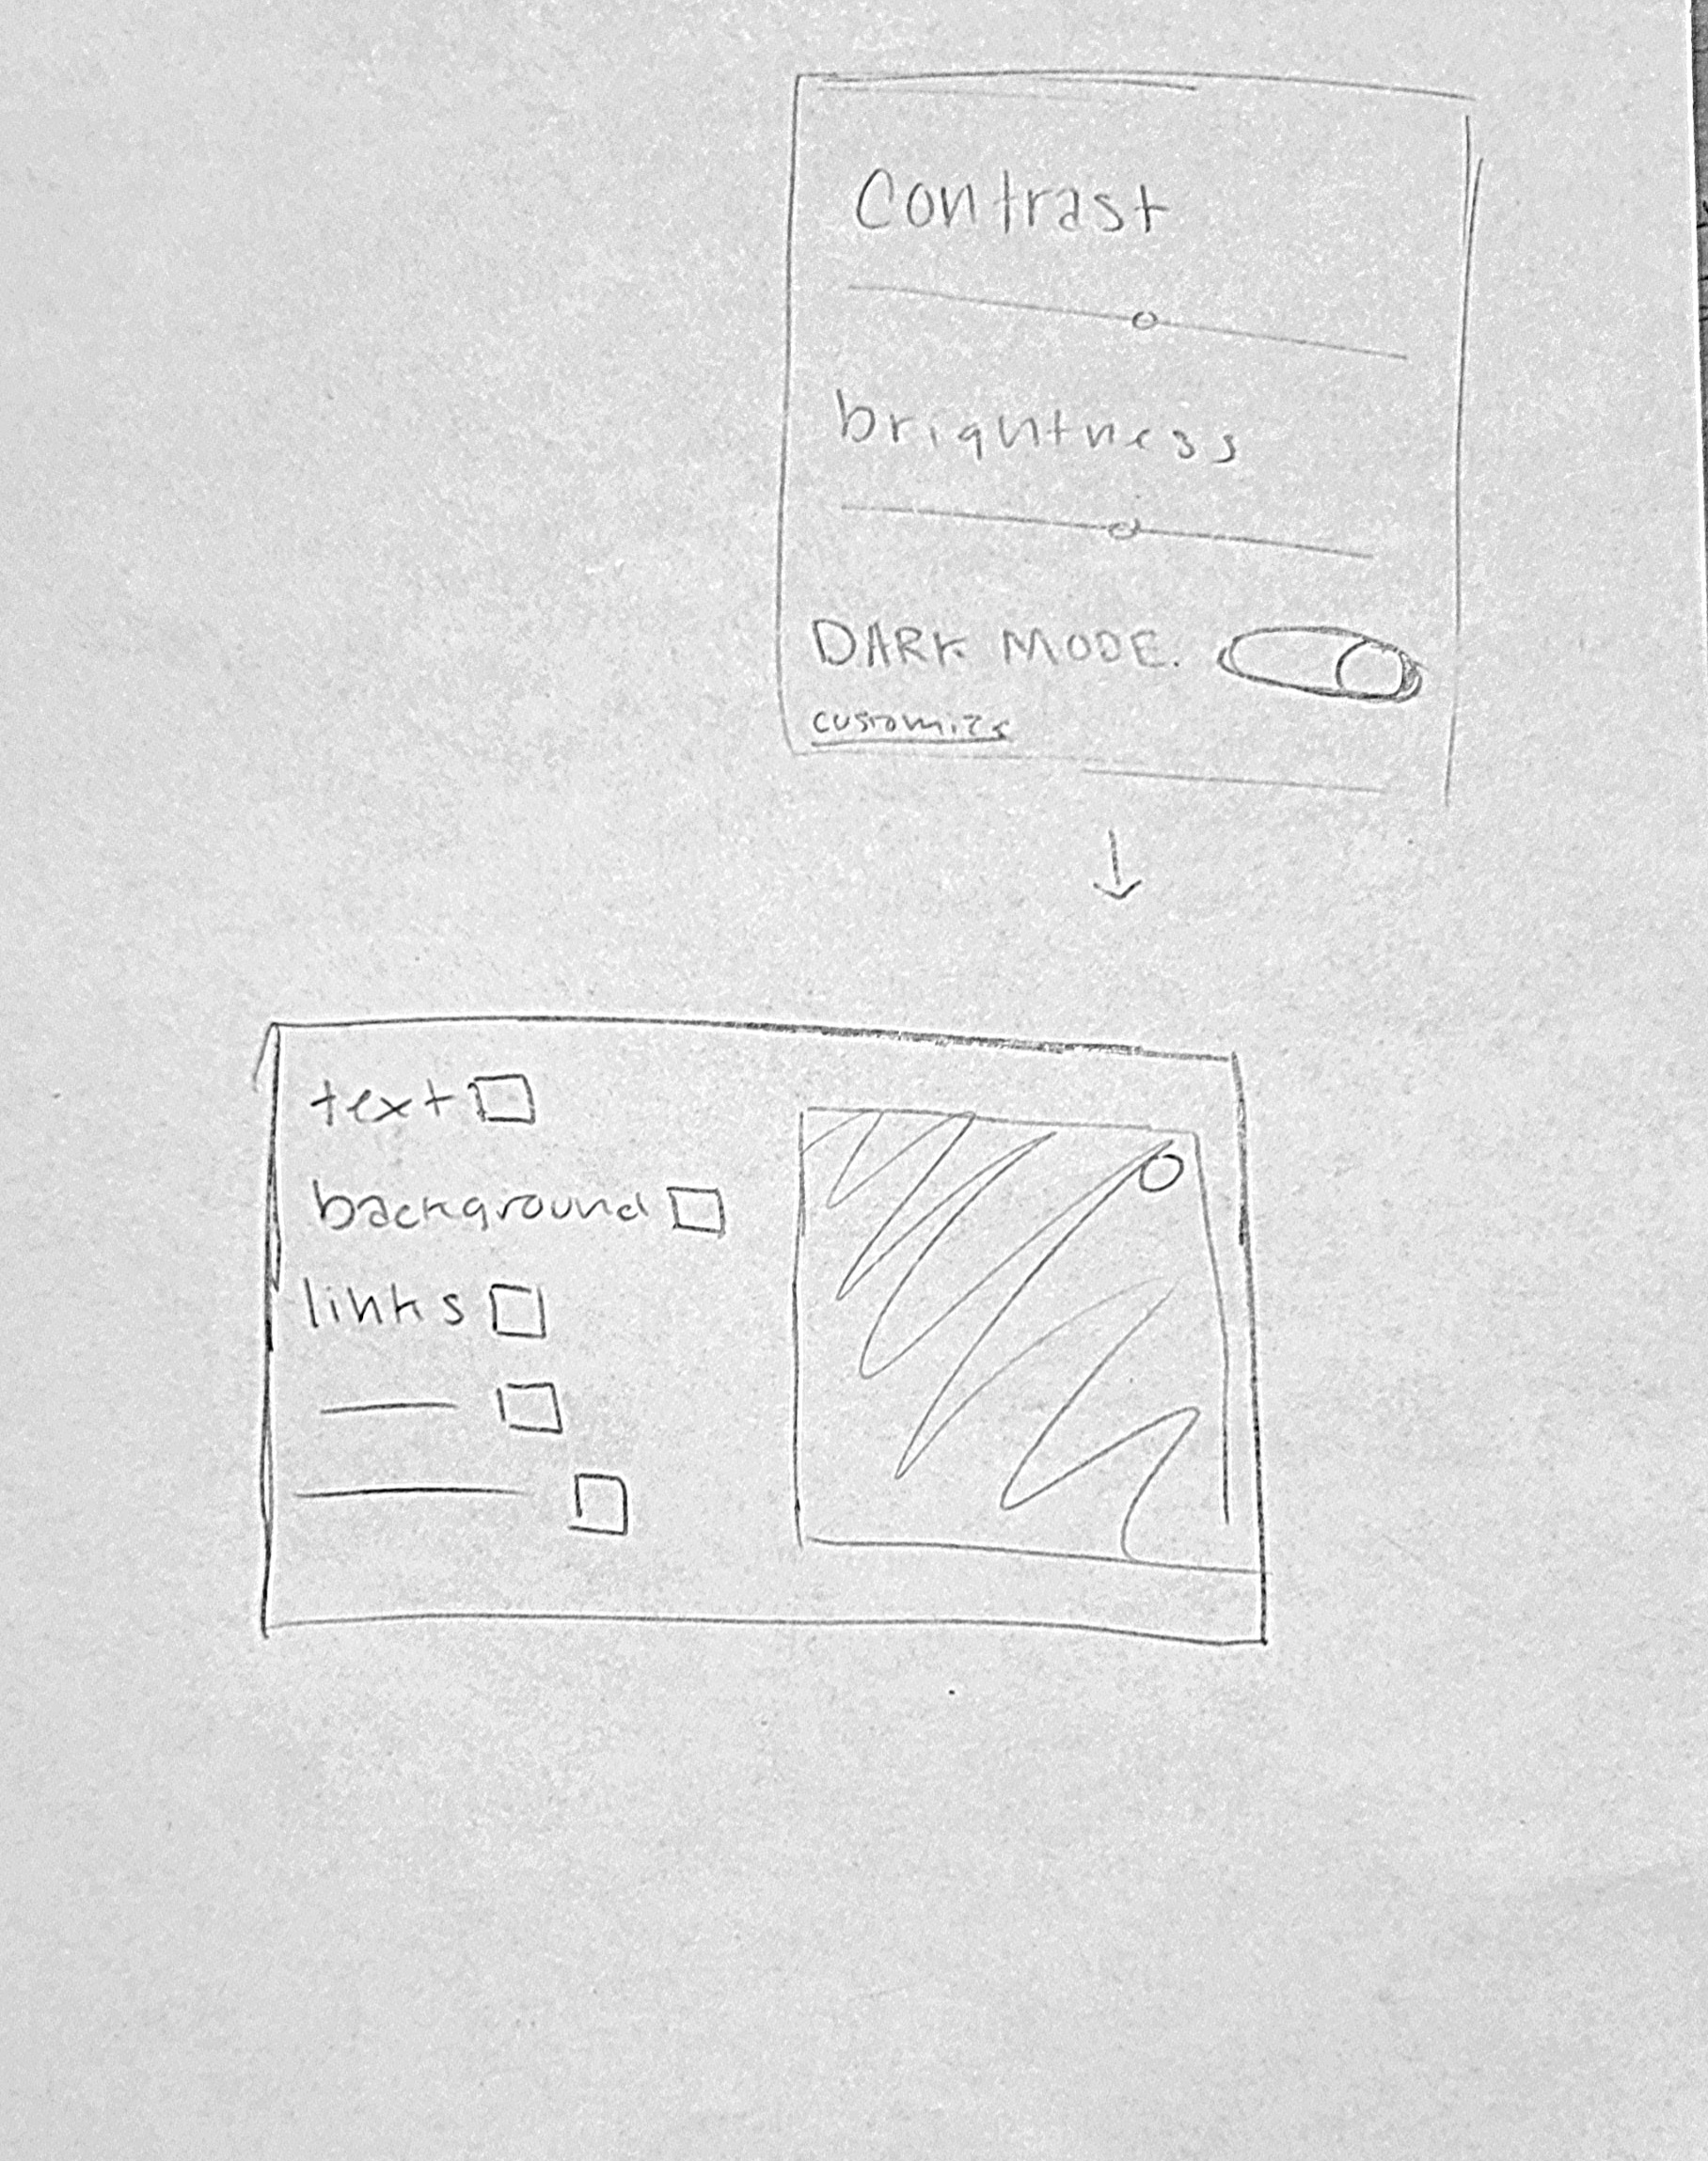 Contrast
brightness
DARK MODE.
customize
text
background
links